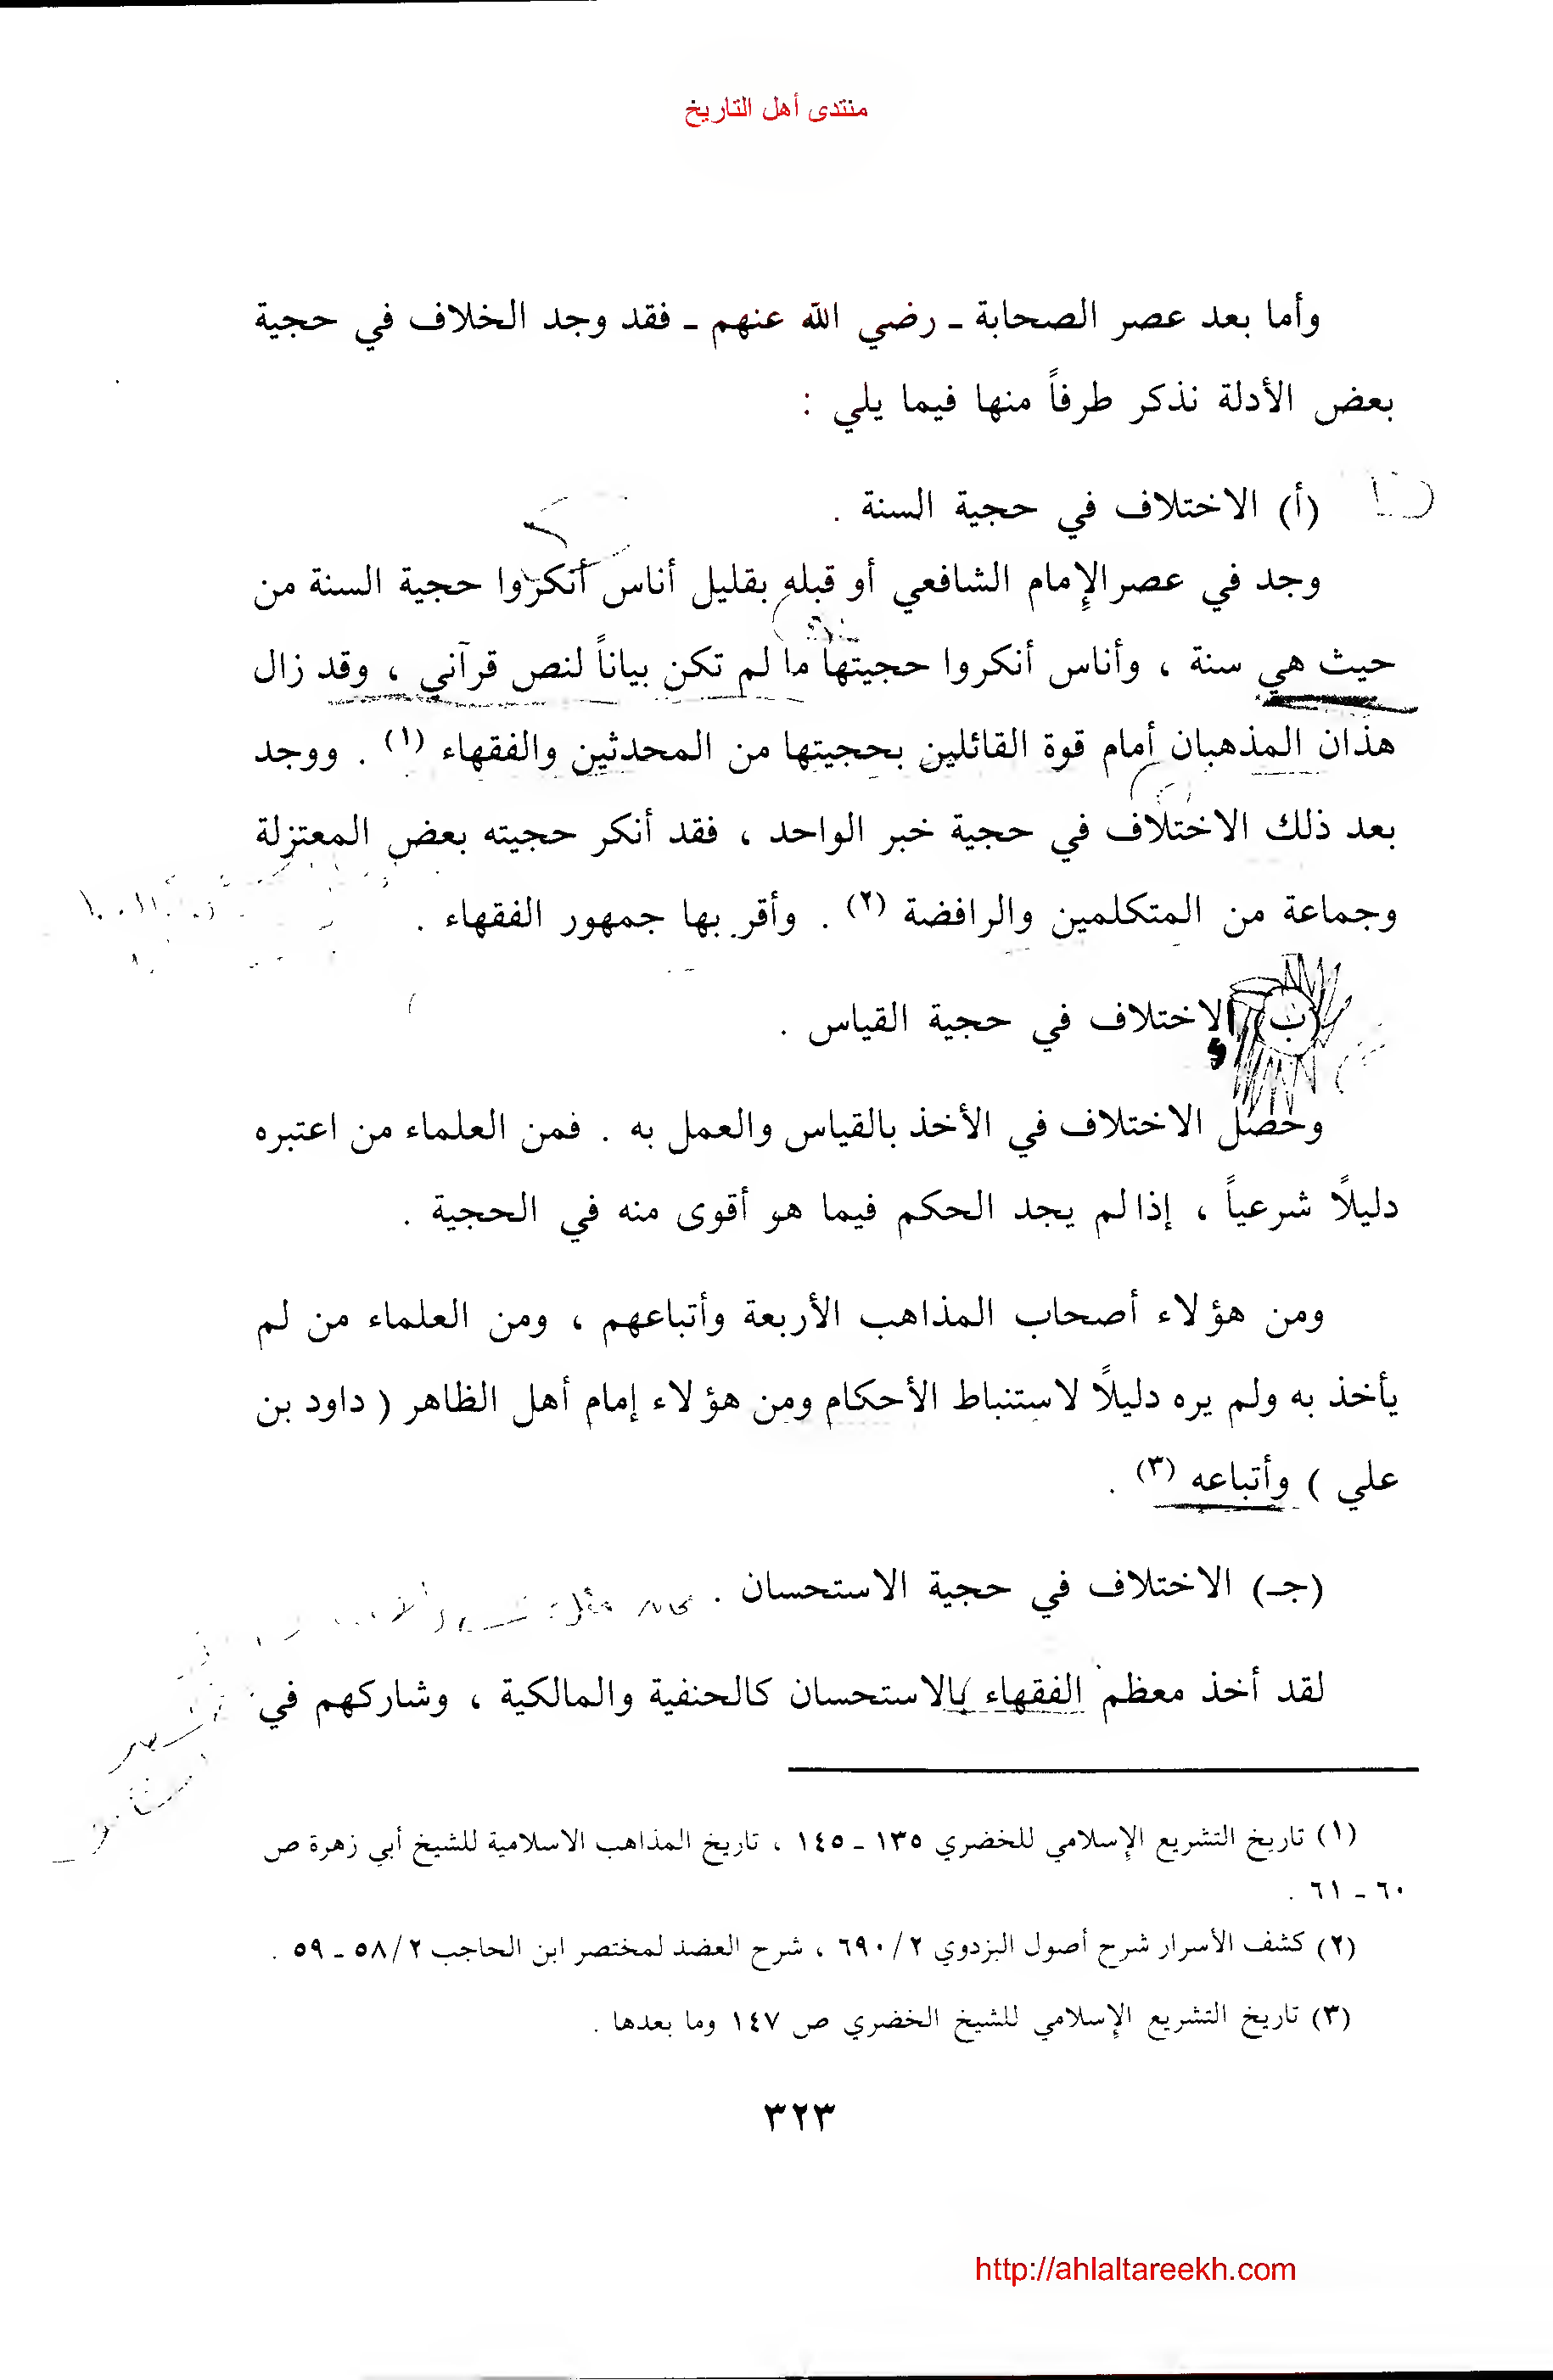 منتدى أهل التاريخ
وأما بعد عصر الصحابة ـ رضي الله عنهم ـ فقد وجد الخلاف في حجية
بعض الأدلة نذكر طرفاً منها فيما يلي :
(أ) الاختلاف في حجية السنة .
وجد في عصر الإمام الشافعي أو قبله بقليل أناس أنكروا حجية السنة من
حيث هي سنة ، وأناس أنكروا حجيتها ما لم تكن بياناً لنص قرآني ، وقد زال
هذان المذهبان أمام قوة القائلين بحجيتها من المحدثين والفقهاء (١) . ووجد
بعد ذلك الاختلاف في حجية خبر الواحد ، فقد أنكر حجيته بعض المعتزلة
وجماعة من المتكلمين والرافضة (٢) . وأقر بها جمهور الفقهاء .
(ب) الاختلاف في حجية القياس .
وحصل الاختلاف في الأخذ بالقياس والعمل به . فمن العلماء من اعتبره
دليلاً شرعياً ، إذا لم يجد الحكم فيما هو أقوى منه في الحجية .
ومن هؤلاء أصحاب المذاهب الأربعة وأتباعهم ، ومن العلماء من لم
يأخذ به ولم يره دليلاً لاستنباط الأحكام ومن هؤلاء إمام أهل الظاهر ( داود بن
علي ) وأتباعه (٣) .
(جـ) الاختلاف في حجية الاستحسان .
لقد أخذ معظم الفقهاء بالاستحسان كالحنفية والمالكية ، وشاركهم في
(١) تاريخ التشريع الإسلامي للخضري ١٣٥ ـ ١٤٥ ، تاريخ المذاهب الاسلامية للشيخ أبي زهرة ص
٦٠ ـ ٦١ .
(٢) كشف الأسرار شرح أصول البزدوي ٢/ ٦٩٠ ، شرح العضد لمختصر ابن الحاجب ٢/ ٥٨ ـ ٥٩ .
(٣) تاريخ التشريع الإسلامي للشيخ الخضري ص ١٤٧ وما بعدها .
٣٢٣
http://ahlaltareekh.com